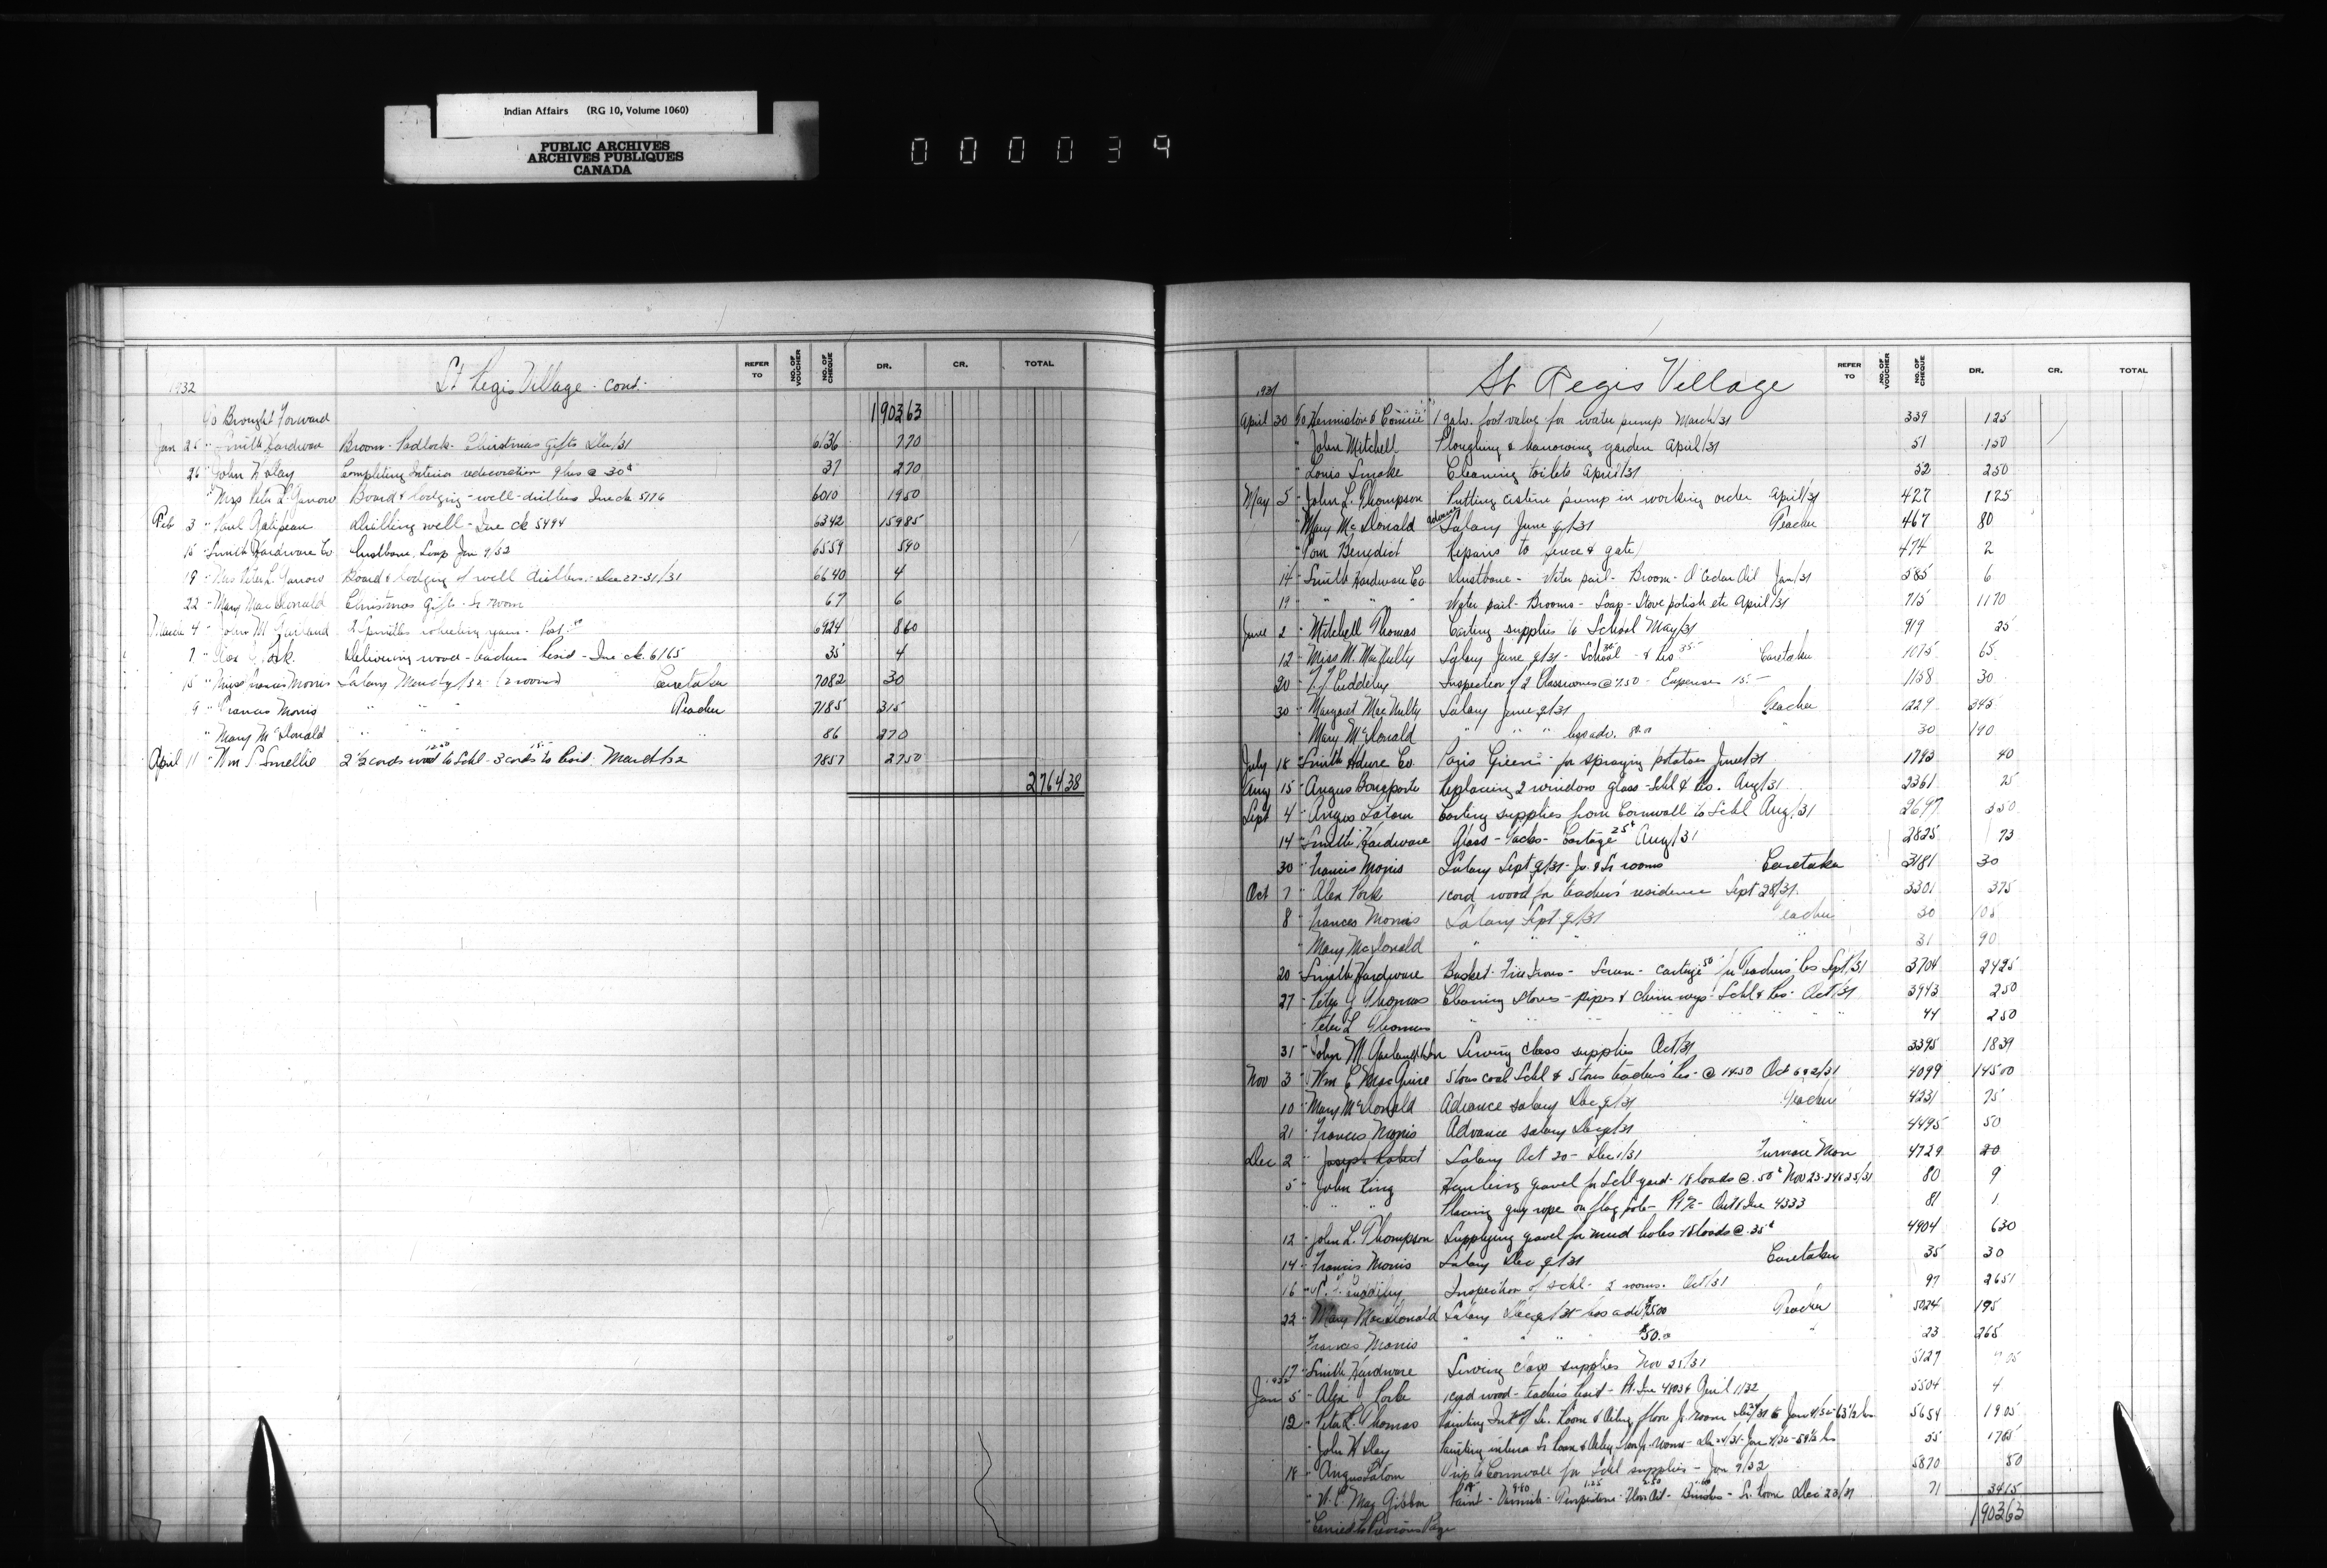 Indian Affairs (RG 10, Volume 1060)
PUBLIC ARCHIVES
ARCHIVES PUBLIQUES
CANADA
000039
1932 St Regis Village - cont. REFER TO NO. OF VOUCHER NO. OF CHEQUE DR. CR. TOTAL
To Brought Forward 190363
Jan 25 " Smith Hardware Broom - Padlock - Christmas gifts Dec/31 6136 770
26 " John W Day Completing Interior redecoration 9 hrs @ 30¢ 37 270
" Mrs Peter L. Garrow Board & lodging - well - drillers Inc ck 5176 6010 1950
Feb 3 " Paul Galipeau Drilling well - Inc ck 5494 6342 15985
15 " Smith Hardware Co Dustbane, Soap Jan 9/32 6559 590
19 " Mrs Peter L. Garrow Board & lodging of well drillers - Dec 27-31/31 6640 4
22 " Mary MacDonald Christmas gifts - Sr room 67 6
March 4 " John M Garland 6924 860
7 " Alex Y Pork. Delivering wood - teachers Resid - Inc ck 6165 35 4
15 " Francis Morris Salary March q/32 (2 rooms) Caretaker 7082 30
9 " Frances Morris " " " Teacher 7185 315
" Mary McDonald " " " " 86 270
April 11 " Wm S. Smellie 2½ cords wood 12.50 to Schl - 3 cords 15.- to Resid. March/32 7857 2750
276438
1931 St Regis Village REFER TO NO. OF VOUCHER NO. OF CHEQUE DR. CR. TOTAL
April 30 To 1 galv. foot valve for water pump March/31 339 125
" John Mitchell Ploughing & harrowing garden April/31 51 150
" Louis Smoke Cleaning toilets April/31 52 250
May 5 " John L. Thompson Putting cistern pump in working order April/31 427 125
" Mary McDonald Advance Salary June q/31 Teacher 467 80
" Tom Benedict Repairs to fence & gate 474 2
14 " Smith Hardware Co Dustbane - Water pail - Broom - O'Cedar Oil Jan/31 585 6
19 " " " Water pail - Brooms - Soap - Stove polish etc April/31 715 1170
June 2 " Mitchell Thomas Carting supplies to School May/31 919 25
12 " Miss M. MacNulty Salary June q/31 - School 30 & Res 35- Caretaker 1075 65
20 " Inspection of 2 Classrooms @ 7.50 - Expenses 15.- 1158 30
30 " Margaret MacNulty Salary June q/31 Teacher 1229 345
" Mary McDonald " " " less adv. 80.00 " 30 190
July 18 " Smith Hdwre Co Paris Green for spraying potatoes June/31 1793 40
Aug 15 " Angus Bonaparte Replacing 2 window glass - Schl & Res. Aug/31 2361 75
Sept 4 " Angus Latour Carting supplies from Cornwall to Schl Aug/31 2697 350
14 " Smith Hardware Glass - Tacks - Cartage 25¢ Aug/31 2825 73
30 " Francis Morris Salary Sept q/31 - Jr. & Sr rooms Caretaker 3181 30
Oct 7 " Alex Pork 1 cord wood for teachers' residence Sept 28/31. 3301 375
8 " Frances Morris Salary Sept q/31 Teacher 30 105
" Mary McDonald " " " " 31 90
20 " Smith Hardware Basket - Fire Irons - Screen - Cartage 50 for Teachers' Res Sept/31 3704 2425
27 " Peter J Thomas Cleaning stoves - pipes & chimneys - Schl & Res - Oct/31 3943 250
" Peter L Thomas " " " " " 44 250
31 " John M. Garland & Son Sewing class supplies Oct/31 3395 1839
Nov 3 " Wm C MacGuire 5 tons coal Schl & 5 tons teachers' Res. @ 14.50 Oct 6 & 2/31 4099 14500
10 " Mary McDonald Advance salary Dec q/31 Teacher 4231 75
21 " Frances Morris Advance salary Dec q/31 " 4495 50
Dec 2 " Joseph Robert Salary Oct 20 - Dec 1/31 Furnace Man 4729 20
5 " John King Hauling gravel for Schl yard - 18 loads @ .50¢ Nov 23-24&25/31 80 9
" " " Placing guy rope on flag pole - 4333 81 1
12 " John L. Thompson Supplying gravel for mud holes 18 loads @ .35¢ 4904 630
14 " Francis Morris Salary Dec q/31 Caretaker 35 30
16 " Inspection of Schl - 2 rooms. Oct/31 97 2651
22 " Mary MacDonald Salary Dec q/31 - less adv $75.00 Teacher 5024 195
" Frances Morris " " " $50.00 " 23 265
17 " Smith Hardware Sewing class supplies Nov 25/31 5127
1932
Jan 5 " Alex J Pork 1 cord wood - teachers Resid - 5504 4
12 " Peter L. Thomas Painting Sr. Room & Oiling floor Jr. room 63½ hrs 5654 1905
" John W Day Painting interior Sr Room & Oiling floor Jr. room - 58½ hrs 55 1765
18 " Angus Latour Trip to Cornwall for Schl supplies - Jan 9/32 5870 50
" W. C. MacGibbon Paint - Varnish - Turpentine - Floor Oil - Brushes - Sr. Room Dec 23/31 71 3415
" Carried to Previous Page 190363